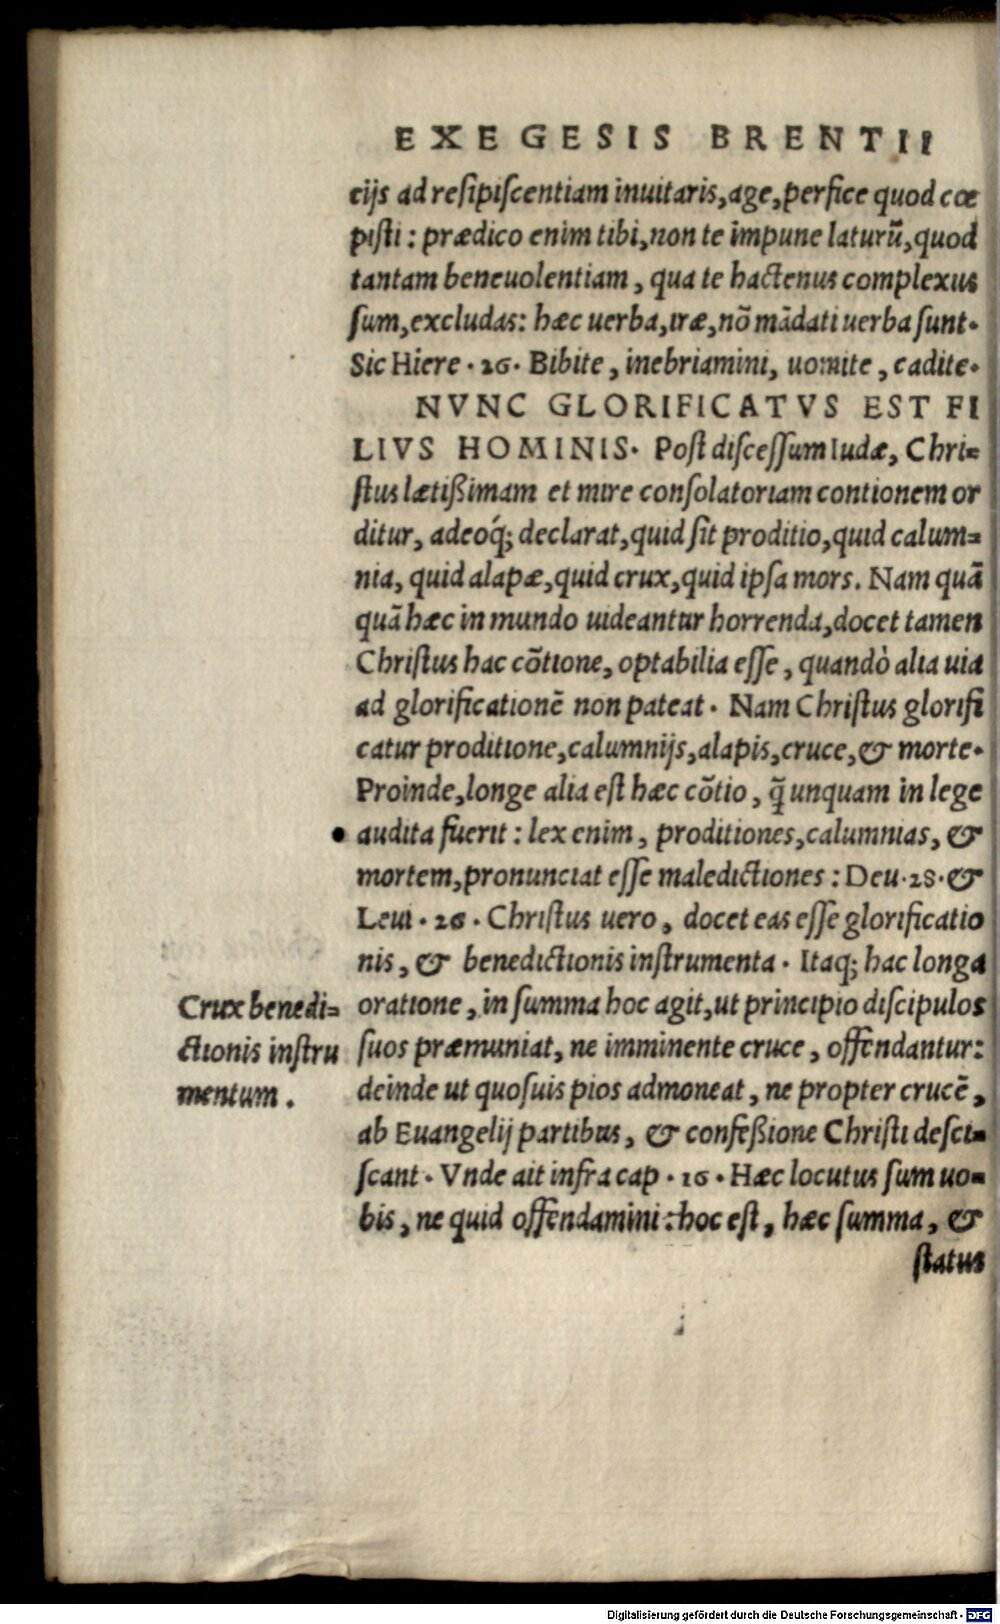 EXEGESIS BRENTII
cijs ad resipiscentiam inuitaris, age, perfice quod cœ
pisti: prædico enim tibi, non te impune laturũ, quod
tantam beneuolentiam, qua te hactenus complexus
sum, excludas: hæc uerba, iræ, nõ mãdati uerba sunt.
Sic Hiere. 26. Bibite, inebriamini, uomite, cadite.
NVNC GLORIFICATVS EST FI
LIVS HOMINIS. Post discessum Iudæ, Chri=
stus lætißimam et mire consolatoriam contionem or
ditur, adeoq́; declarat, quid sit proditio, quid calum=
nia, quid alapæ, quid crux, quid ipsa mors. Nam quã
quã hæc in mundo uideantur horrenda, docet tamen
Christus hac cõtione, optabilia esse, quandò alia uia
ad glorificationẽ non pateat. Nam Christus glorifi
catur proditione, calumnijs, alapis, cruce, & morte.
Proinde, longe alia est hæc cõtio, q̃ unquam in lege
audita fuerit: lex enim, proditiones, calumnias, &
mortem, pronunciat esse maledictiones: Deu. 28. &
Leui. 26. Christus uero, docet eas esse glorificatio
nis, & benedictionis instrumenta. Itaq; hac longa
oratione, in summa hoc agit, ut principio discipulos
suos præmuniat, ne imminente cruce, offendantur:
deinde ut quosuis pios admoneat, ne propter crucẽ,
ab Euangelij partibus, & confeßione Christi desci=
scant. Vnde ait infra cap. 16. Hæc locutus sum uo=
bis, ne quid offendamini: hoc est, hæc summa, &
status
Crux benedi=
ctionis instru
mentum.
Digitalisierung gefördert durch die Deutsche Forschungsgemeinschaft - DFG